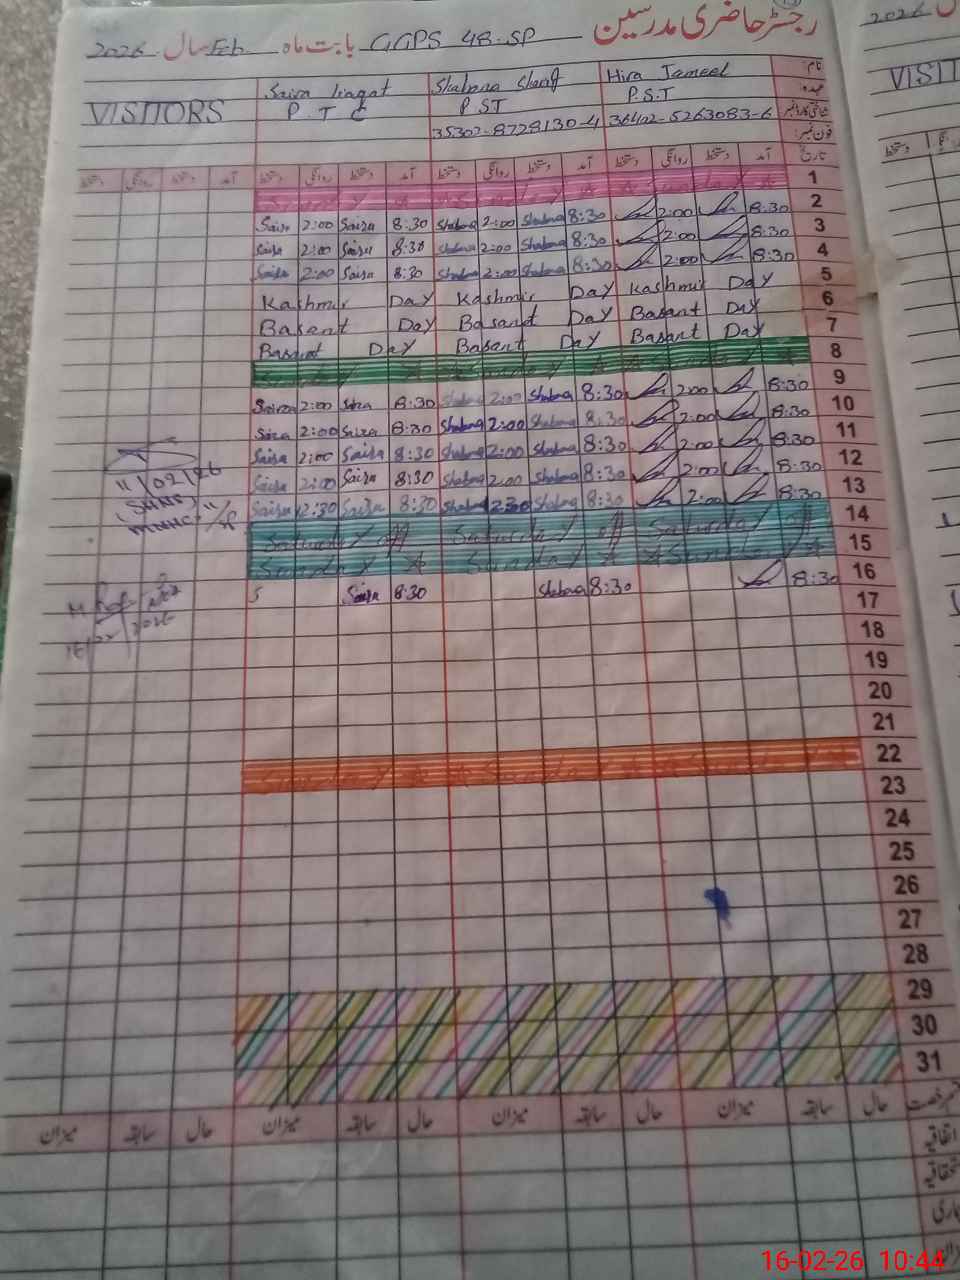 رجسٹر حاضری مدرسین GGPS 48-SP بابت ماہ Feb سال 2026
نام: Hira Jameel Shabana Sharif Saira Liaqat
عہدہ: P.S.T PST P.T.C VISITORS
شناختی کارڈ نمبر 36402-5263083-6 35302-8728130-4
فون نمبر:
تاریخ آمد دستخط روانگی دستخط آمد دستخط روانگی دستخط آمد دستخط روانگی دستخط آمد دستخط روانگی دستخط
1 Sunday
2 8:30 2:00 8:30 Shabana 2:00 Shabana 8:30 Saira 2:00 Saira
3 8:30 2:00 8:30 Shabana 2:00 Shabana 8:30 Saira 2:00 Saira
4 8:30 2:00 8:30 Shabana 2:00 Shabana 8:30 Saira 2:00 Saira
5 Kashmir Day Kashmir Day Kashmir Day
6 Basant Day Basant Day Basant Day
7 Basant Day Basant Day Basant Day
8 Sunday
9 8:30 2:00 8:30 Shabana 2:00 Shabana 8:30 Saira 2:00 Saira
10 8:30 2:00 8:30 Shabana 2:00 Shabana 8:30 Saira 2:00 Saira
11 8:30 2:00 8:30 Shabana 2:00 Shabana 8:30 Saira 2:00 Saira
12 8:30 2:00 8:30 Shabana 2:00 Shabana 8:30 Saira 2:00 Saira 11/02/26
13 8:30 2:00 8:30 Shabana Shabana 8:30 Saira 12:30 Saira
14 Saturday off Saturday off Saturday off
15 Sunday Sunday Sunday
16 8:30 8:30 Shabana 8:30 Saira
17
18
19
20
21
22 Sunday Sunday Sunday
23
24
25
26
27
28
29
30
31
حال سابقہ میزان حال سابقہ میزان حال سابقہ میزان حال سابقہ میزان
اتفاقیہ
2026
VISIT
16-02-26 10:44